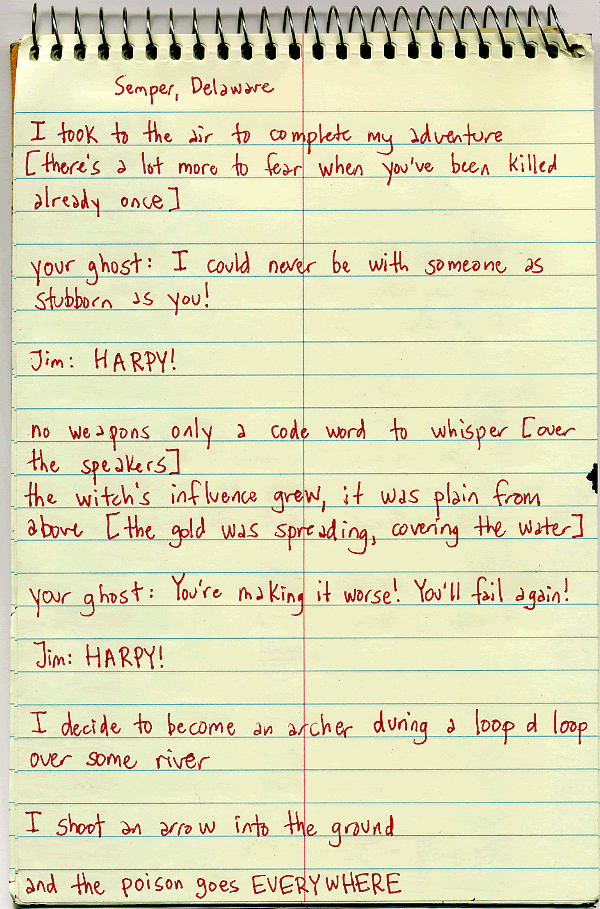 Semper, Delaware
I took to the air to complete my adventure
[there's a lot more to fear when you've been killed
already once]
your ghost: I could never be with someone as
stubborn as you!
Jim: HARPY!
no weapons only a code word to whisper [over
the speakers]
the witch's influence grew, it was plain from
above [the gold was spreading, covering the water]
your ghost: You're making it worse! You'll fail again!
Jim: HARPY!
I decide to become an archer during a loop d loop
over some river
I shoot an arrow into the ground
and the poison goes EVERYWHERE